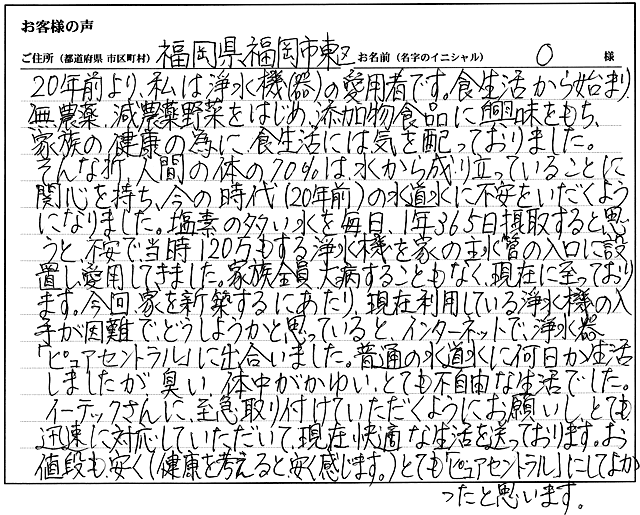 お客様の声
ご住所（都道府県 市区町村） 福岡県福岡市東区 お名前（名字のイニシャル） O 様
20年前より、私は浄水機(器)の愛用者です。食生活から始まり
無農薬、減農薬野菜をはじめ、添加物食品に興味をもち、
家族の健康の為に、食生活には気を配っておりました。
そんな折、人間の体の70%は水から成り立っていることに
関心を持ち、今の時代(20年前)の水道水に不安をいだくよう
になりました。塩素の多い水を毎日、1年365日摂取すると思
うと、不安で、当時120万もする浄水機を家の主水管の入口に設
置し、愛用してきました。家族全員大病することもなく、現在に至っており
ます。今回、家を新築するにあたり、現在利用している浄水機の入
手が困難で、どうしようかと思っていると、インターネットで、浄水器
「ピュアセントラル」に出合いました。普通の水道水に何日か生活
しましたが、臭い、体中がかゆい、とても不自由な生活でした。
イーテックさんに、至急取り付けていただくようにお願いし、とても
迅速に対応していただいて、現在快適な生活を送っております。お
値段も、安く(健康を考えると、安く感じます。)とても「ピュアセントラル」にしてよか
ったと思います。